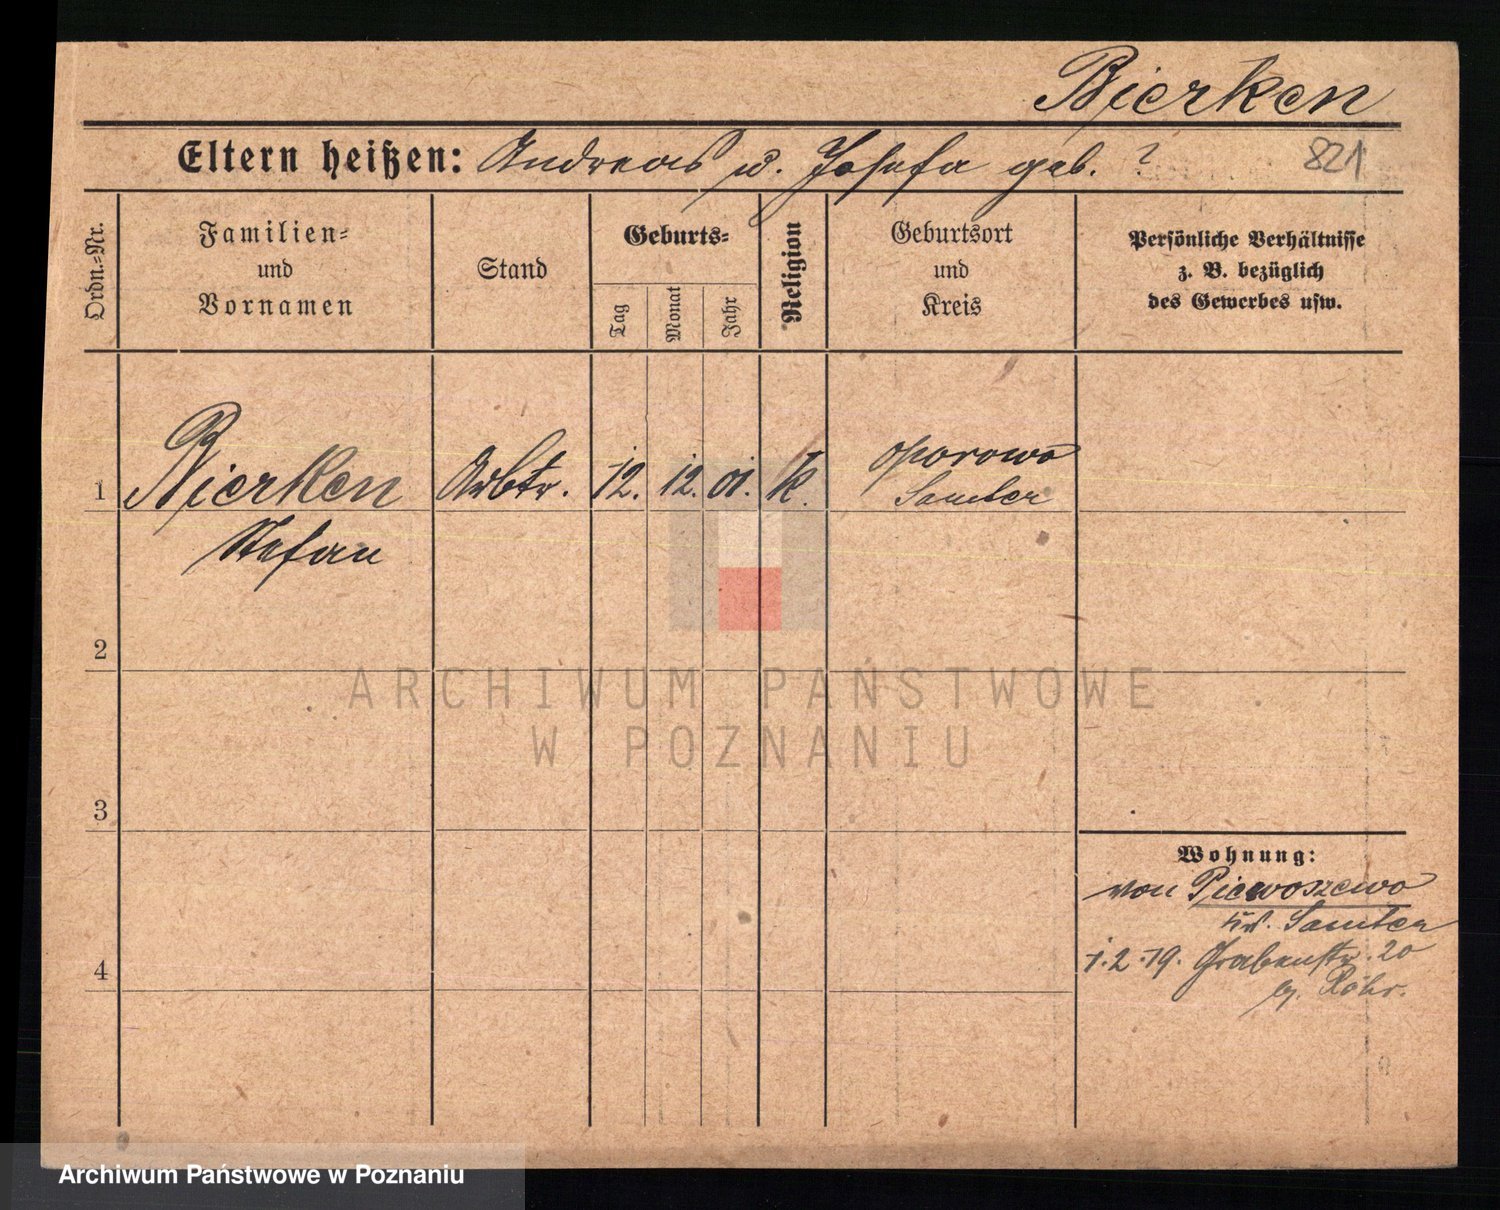 Bierken
Eltern heißen: Andreas u. Josefa geb. ?
821
Ordn.=Nr.
Familien=
und
Vornamen
Stand
Geburts=
Tag
Monat
Jahr
Religion
Geburtsort
und
Kreis
Persönliche Verhältnisse
z. B. bezüglich
des Gewerbes usw.
1 Bierken Arbtr. 12. 12. 01. k. Oporowo
Samter
Stefan
2
3
4
Wohnung:
von Pierwoszewo
Kr. Samter
1.2.19. Grabenstr. 20
b. Röhr.
ARCHIWUM PAŃSTWOWE
W POZNANIU
Archiwum Państwowe w Poznaniu